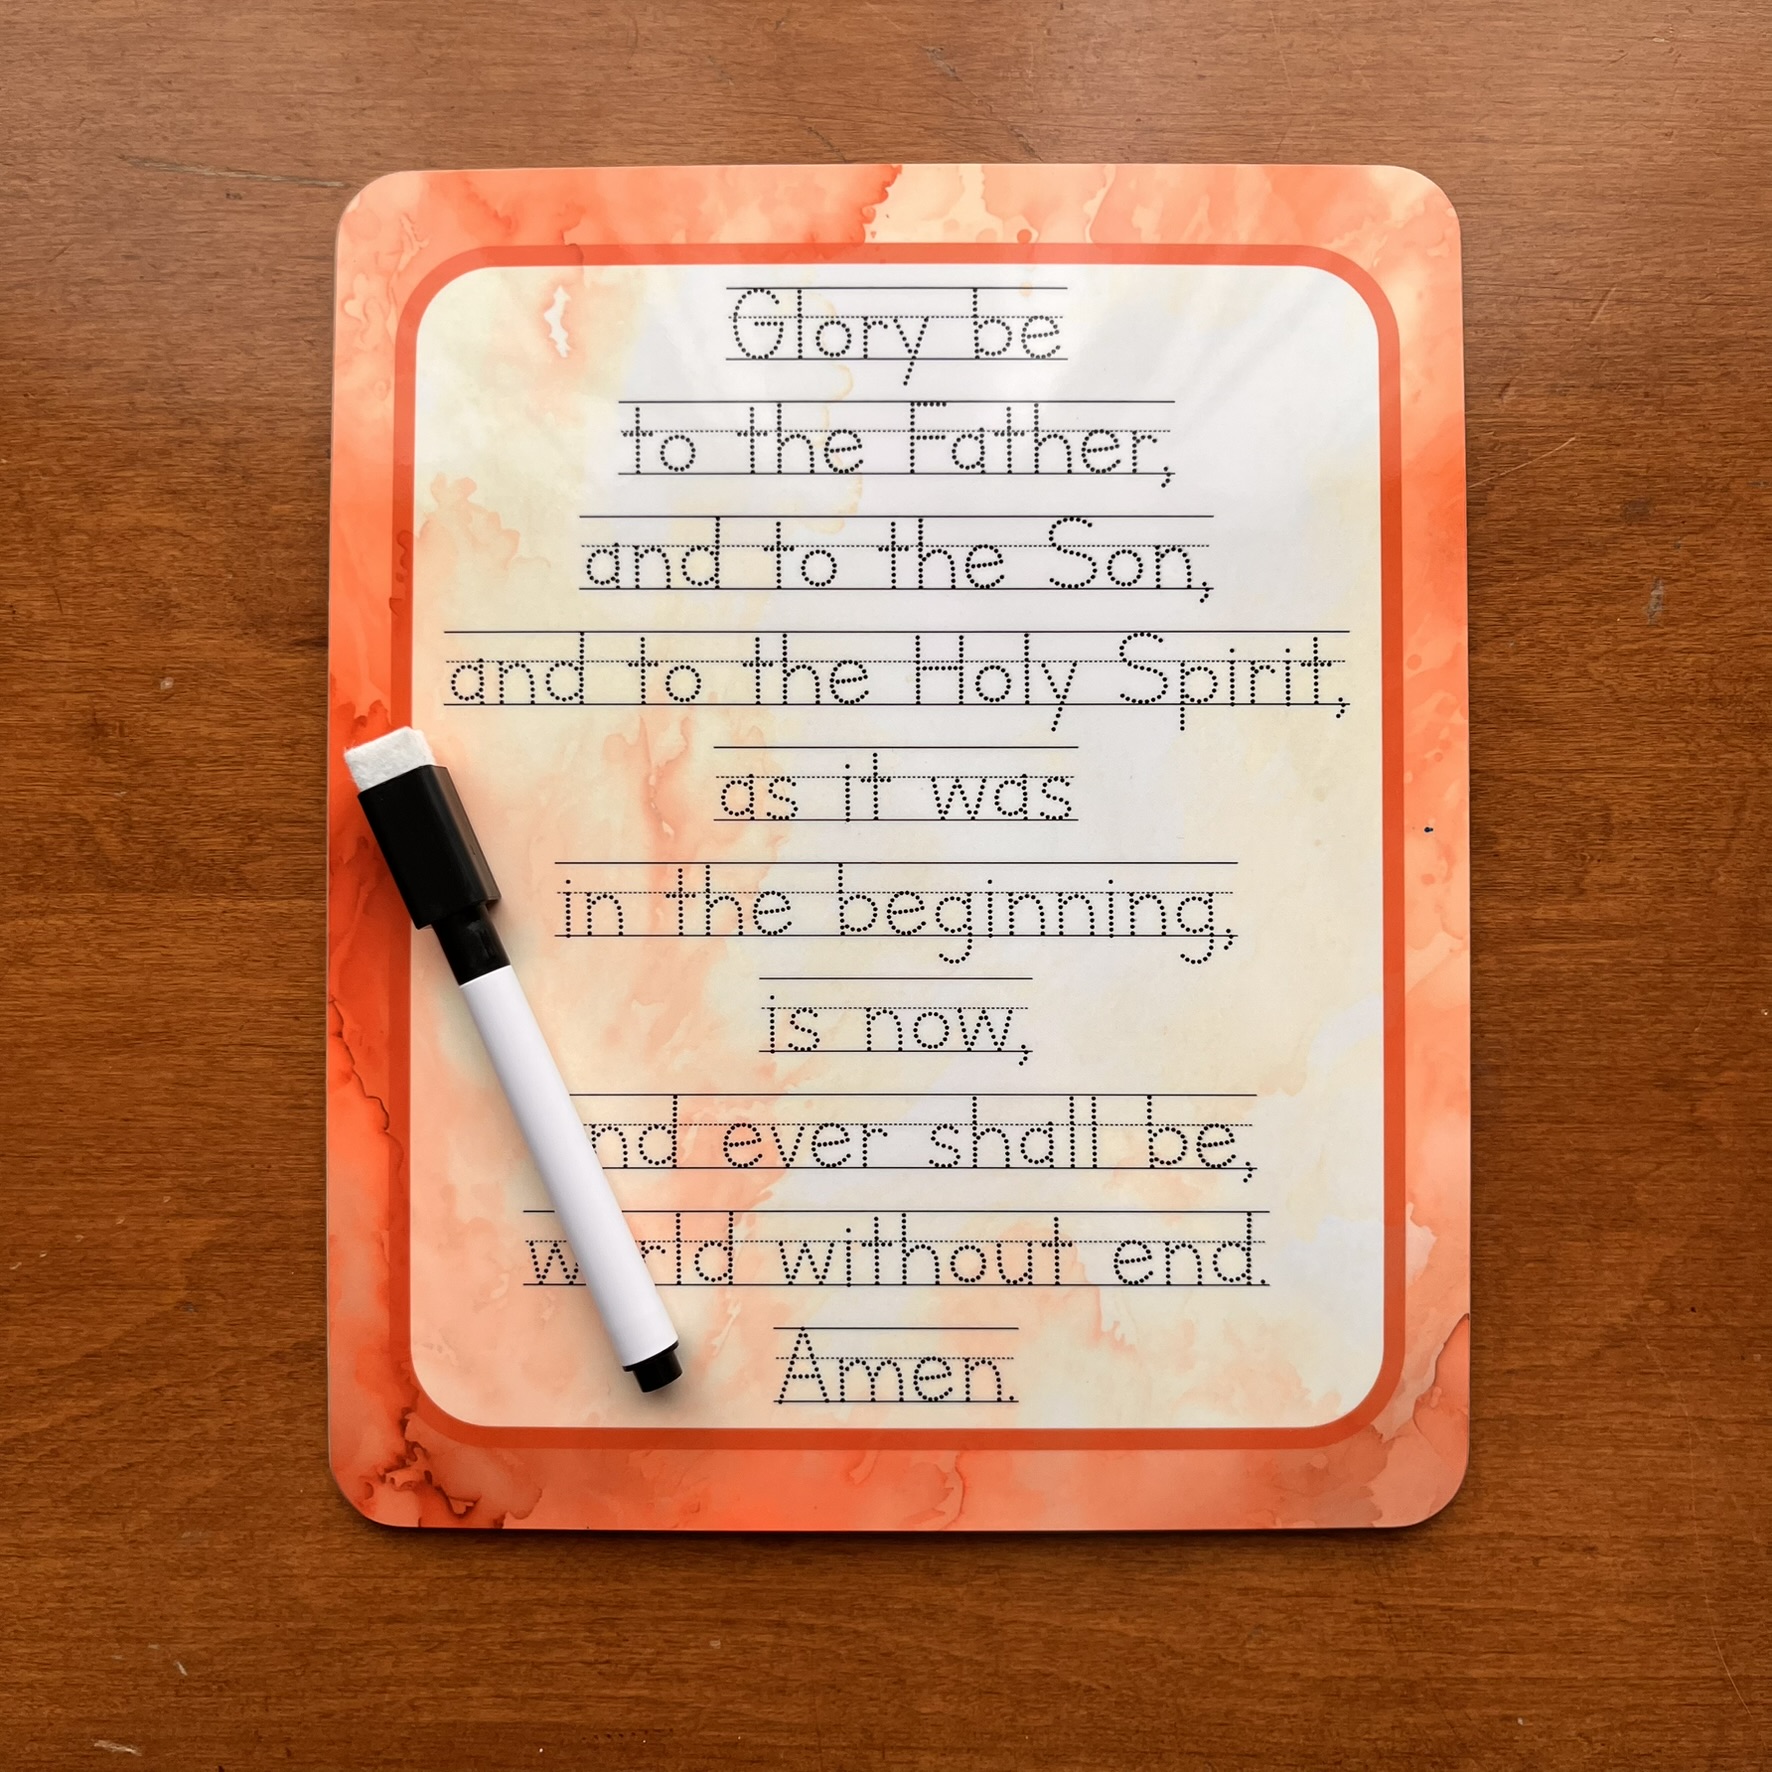 Glory be
to the Father,
and to the Son,
and to the Holy Spirit,
as it was
in the beginning,
is now,
ever shall be,
without end.
Amen.